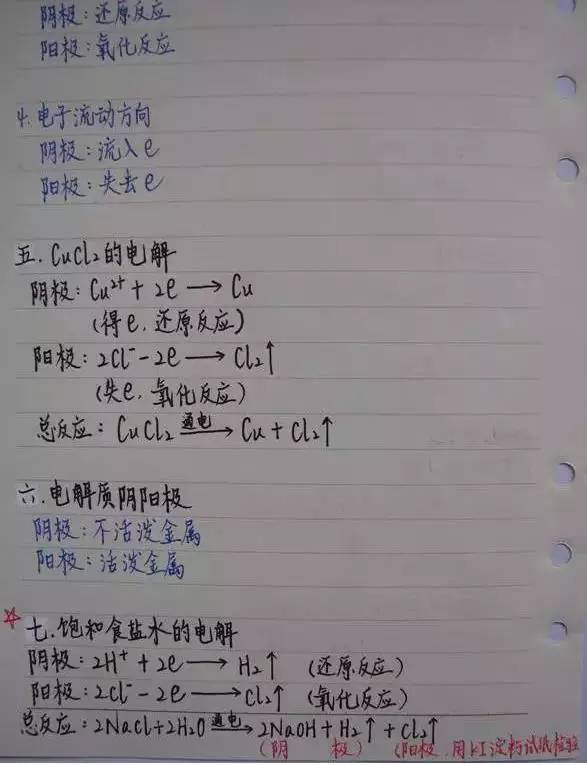 阴极：还原反应
阳极：氧化反应
4.电子流动方向
阴极：流入e
阳极：失去e
五.CuCl₂的电解
阴极：Cu²⁺ + 2e ⟶ Cu
(得e.还原反应)
阳极：2Cl⁻ - 2e ⟶ Cl₂↑
(失e.氧化反应)
总反应：CuCl₂ 通电⟶ Cu + Cl₂↑
六.电解质阴阳极
阴极：不活泼金属
阳极：活泼金属
☆ 七.饱和食盐水的电解
阴极：2H⁺ + 2e ⟶ H₂↑ (还原反应)
阳极：2Cl⁻ - 2e ⟶ Cl₂↑ (氧化反应)
总反应：2NaCl+2H₂O 通电⟶ 2NaOH + H₂↑ + Cl₂↑
(阴 极) (阳极.用KI淀粉试纸检验